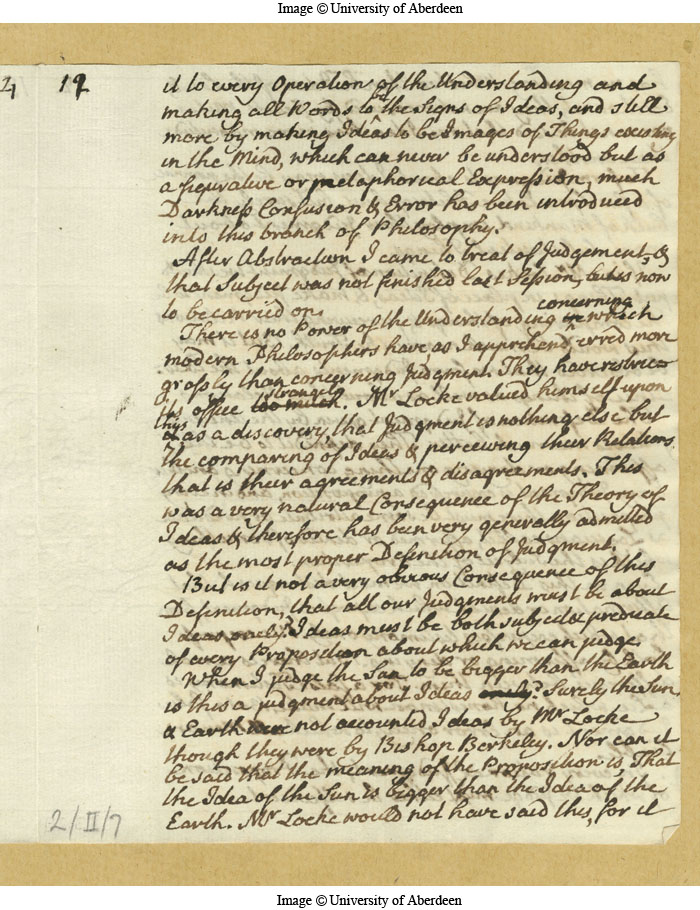 Image © University of Aberdeen
12
it to every Operation of the Understanding and
making all Words to be the Signs of Ideas, and still
more by making Ideas to be Images of Things existing
in the Mind, which can never be understood but as
a figurative or metaphorical Expression, much
Darkness Confusion & Error has been introduced
into this branch of Philosophy.
After Abstraction I came to treat of Judgement, &
that Subject was not finished last Session, but is now
to be carried on.
concerning
There is no Power of the Understanding in which
modern Philosophers have, as I apprehend erred more
grossly than concerning Judgment. They have restricted
strangely
its office too much. Mr Locke valued himself upon
this
as a discovery, that Judgment is nothing else but
the comparing of Ideas & perceiving their Relations
that is their agreements & disagreements. This
was a very natural Consequence of the Theory of
Ideas & therefore has been very generally admitted
as the most proper Definition of Judgment.
But is it not a very obvious Consequence of this
Definition, that all our Judgments must be about
Ideas only? Ideas must be both subject & predicate
of every Proposition about which we can judge.
When I judge the Sun to be bigger than the Earth
is this a judgment about Ideas only? Surely the Sun
& Earth were not accounted Ideas by Mr Locke
though they were by Bishop Berkeley. Nor can it
be said that the meaning of the Proposition is, That
the Idea of the Sun is bigger than the Idea of the
Earth. Mr Locke would not have said this, for it
2/II/7
Image © University of Aberdeen